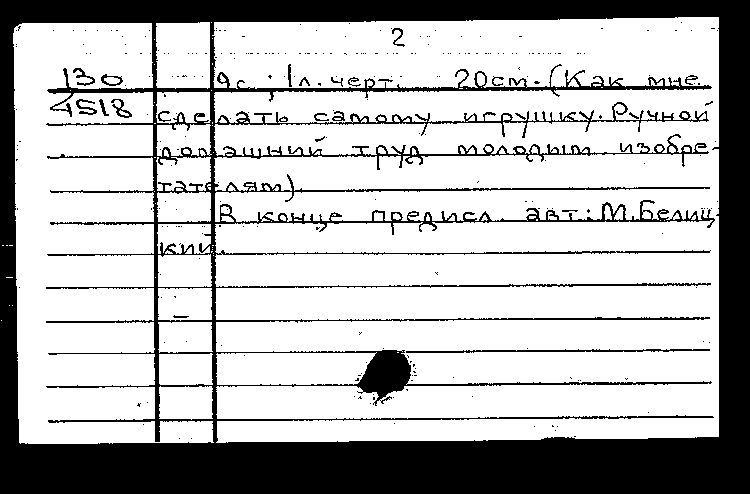 2
130 9с.; 1л. черт. 20см. (Как мне
4518 сделать самому игрушку. Ручной
домашний труд молодым изобре-
тателям).
В конце предисл. авт.: М. Белиц-
кий.